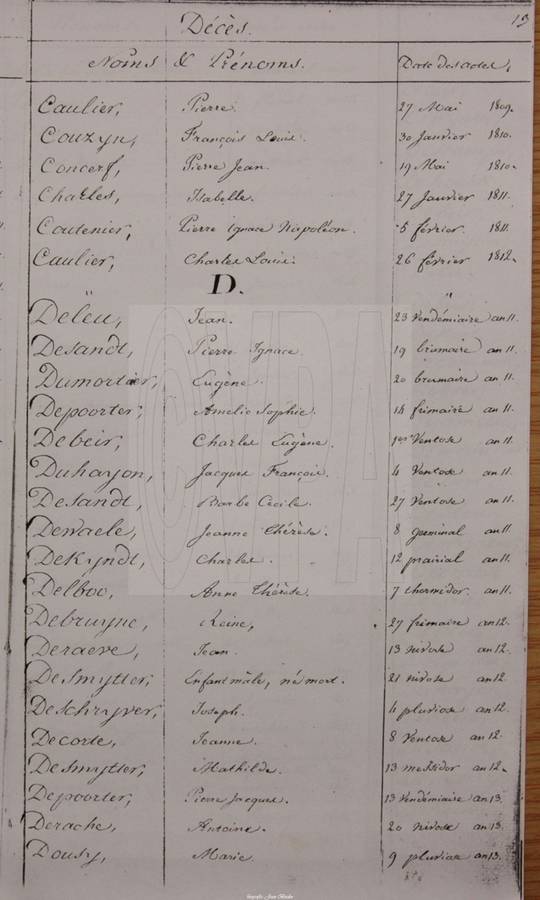 13
Décès.
Noms & Prénoms. Date des actes.
Caulier, Pierre. 27 Mai 1809.
Couzyn, François Louis. 30 Janvier 1810.
Concerf, Pierre Jean. 19 Mai 1810.
Charles, Isabelle. 27 Janvier 1811.
Coutenier, Pierre Ignace Napoléon. 5 février 1811.
Caulier, Charles Louis. 26 février 1812.
D.
Deleu, Jean. 23 Vendémiaire an 11.
Desandt, Pierre Ignace. 19 brumaire an 11.
Dumortier, Eugène. 20 brumaire an 11.
Depoorter, Amelie Sophie. 14 frimaire an 11.
Debeir, Charles Eugène. 1er Ventose an 11.
Duhayon, Jacques François. 4 Ventose an 11.
Desandt, Barbe Cecile. 27 Ventose an 11.
Dewaele, Jeanne Thérèse. 8 germinal an 11.
DeKyndt, Charles. 12 prairial an 11.
Delboo, Anne Thérèse. 7 thermidor an 11.
Debruyne, Reine, 27 frimaire an 12.
Deraeve, Jean. 13 nivose an 12.
DeSmytter, Enfant mâle, né mort. 21 nivose an 12
DeSchryver, Joseph. 4 pluviose an 12.
Decorte, Jeanne. 8 Ventose an 12.
DeSmytter, Mathilde. 13 messidor an 12.
Depoorter, Pierre Jacques. 13 Vendémiaire an 13.
Derache, Antoine. 20 nivose an 13.
Dousy, Marie. 9 pluviose an 13.